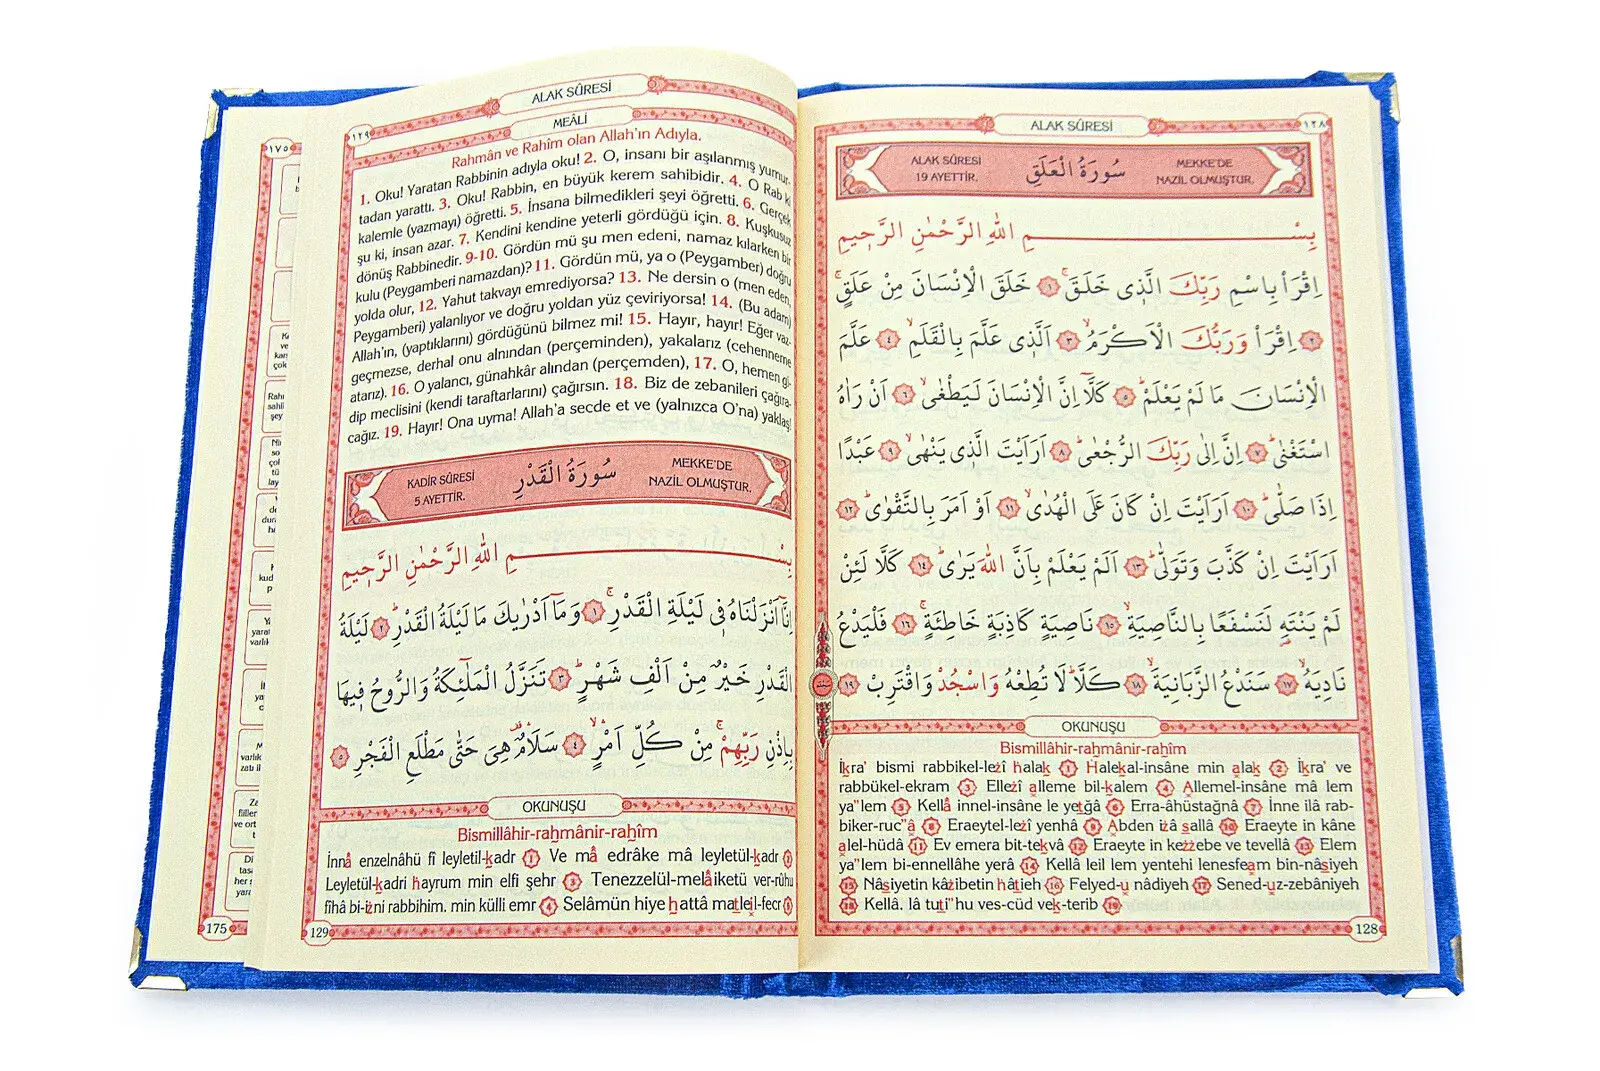 ALAK SÛRESİ
١٢٨
ALAK SÛRESİ
19 AYETTİR.
سُورَةُ الْعَلَقِ
MEKKE'DE
NAZİL OLMUŞTUR.
بِسْمِ اللهِ الرَّحْمٰنِ الرَّح۪يمِ
اِقْرَأْ بِاسْمِ رَبِّكَ الَّذ۪ي خَلَقَۚ ﴿١﴾ خَلَقَ الْاِنْسَانَ مِنْ عَلَقٍۚ
﴿٢﴾ اِقْرَأْ وَرَبُّكَ الْاَكْرَمُۙ ﴿٣﴾ اَلَّذ۪ي عَلَّمَ بِالْقَلَمِۙ ﴿٤﴾ عَلَّمَ
الْاِنْسَانَ مَا لَمْ يَعْلَمْۜ ﴿٥﴾ كَلَّٓا اِنَّ الْاِنْسَانَ لَيَطْغٰىۙ ﴿٦﴾ اَنْ رَاٰهُ
اسْتَغْنٰىۜ ﴿٧﴾ اِنَّ اِلٰى رَبِّكَ الرُّجْعٰىۜ ﴿٨﴾ اَرَاَيْتَ الَّذ۪ي يَنْهٰىۙ ﴿٩﴾ عَبْدًا
اِذَا صَلّٰىۜ ﴿١٠﴾ اَرَاَيْتَ اِنْ كَانَ عَلَى الْهُدٰىۙ ﴿١١﴾ اَوْ اَمَرَ بِالتَّقْوٰىۜ ﴿١٢﴾
اَرَاَيْتَ اِنْ كَذَّبَ وَتَوَلّٰىۜ ﴿١٣﴾ اَلَمْ يَعْلَمْ بِاَنَّ اللهَ يَرٰىۜ ﴿١٤﴾ كَلَّا لَئِنْ
لَمْ يَنْتَهِ لَنَسْفَعًا بِالنَّاصِيَةِۙ ﴿١٥﴾ نَاصِيَةٍ كَاذِبَةٍ خَاطِئَةٍۚ ﴿١٦﴾ فَلْيَدْعُ
نَادِيَهُۙ ﴿١٧﴾ سَنَدْعُ الزَّبَانِيَةَۙ ﴿١٨﴾ كَلَّاۜ لَا تُطِعْهُ وَاسْجُدْ وَاقْتَرِبْ ﴿١٩﴾
OKUNUŞU
Bismillâhir-rahmânir-rahîm
İkra' bismi rabbikel-lezî halak 1 Halekal-insâne min alak 2 İkra' ve
rabbükel-ekram 3 Ellezî alleme bil-kalem 4 Allemel-insâne mâ lem
ya"lem 5 Kellâ innel-insâne le yetğâ 6 Erra-âhüstağnâ 7 İnne ilâ rab-
biker-ruc"â 8 Eraeytel-lezî yenhâ 9 Abden izâ sallâ 10 Eraeyte in kâne
alel-hüdâ 11 Ev emera bit-tekvâ 12 Eraeyte in kezzebe ve tevellâ 13 Elem
ya"lem bi-ennellâhe yerâ 14 Kellâ leil lem yentehi lenesfeam bin-nâsiyeh
15 Nâsiyetin kâzibetin hâtieh 16 Felyed-u nâdiyeh 17 Sened-uz-zebâniyeh
18 Kellâ. lâ tuti"hu ves-cüd vek-terib 19
128
ALAK SÛRESİ
١٢٩
MEÂLİ
Rahmân ve Rahîm olan Allah'ın Adıyla.
1. Oku! Yaratan Rabbinin adıyla oku! 2. O, insanı bir aşılanmış yumur-
tadan yarattı. 3. Oku! Rabbin, en büyük kerem sahibidir. 4. O Rab ki
kalemle (yazmayı) öğretti. 5. İnsana bilmedikleri şeyi öğretti. 6. Gerçek
şu ki, insan azar. 7. Kendini kendine yeterli gördüğü için. 8. Kuşkusuz
dönüş Rabbinedir. 9-10. Gördün mü şu men edeni, namaz kılarken bir
kulu (Peygamberi namazdan)? 11. Gördün mü, ya o (Peygamber) doğru
yolda olur, 12. Yahut takvayı emrediyorsa? 13. Ne dersin o (men eden,
Peygamberi) yalanlıyor ve doğru yoldan yüz çeviriyorsa! 14. (Bu adam)
Allah'ın, (yaptıklarını) gördüğünü bilmez mi! 15. Hayır, hayır! Eğer vaz-
geçmezse, derhal onu alnından (perçeminden), yakalarız (cehenneme
atarız). 16. O yalancı, günahkâr alından (perçemden), 17. O, hemen gi-
dip meclisini (kendi taraftarlarını) çağırsın. 18. Biz de zebanileri çağıra-
cağız. 19. Hayır! Ona uyma! Allah'a secde et ve (yalnızca O'na) yaklaş!
KADİR SÛRESİ
5 AYETTİR.
سُورَةُ الْقَدْرِ
MEKKE'DE
NAZİL OLMUŞTUR.
بِسْمِ اللهِ الرَّحْمٰنِ الرَّح۪يمِ
اِنَّٓا اَنْزَلْنَاهُ ف۪ي لَيْلَةِ الْقَدْرِۚ ﴿١﴾ وَمَٓا اَدْرٰيكَ مَا لَيْلَةُ الْقَدْرِۜ ﴿٢﴾ لَيْلَةُ
الْقَدْرِ خَيْرٌ مِنْ اَلْفِ شَهْرٍۜ ﴿٣﴾ تَنَزَّلُ الْمَلٰٓئِكَةُ وَالرُّوحُ ف۪يهَا
بِاِذْنِ رَبِّهِمْۚ مِنْ كُلِّ اَمْرٍۙ ﴿٤﴾ سَلَامٌ۠ هِيَ حَتّٰى مَطْلَعِ الْفَجْرِ ﴿٥﴾
OKUNUŞU
Bismillâhir-rahmânir-rahîm
İnnâ enzelnâhü fî leyletil-kadr 1 Ve mâ edrâke mâ leyletül-kadr 2
Leyletül-kadri hayrum min elfi şehr 3 Tenezzelül-melâiketü ver-rûhu
fîhâ bi-izni rabbihim. min külli emr 4 Selâmün hiye hattâ matleıl-fecr 5
129
١٧٥
175